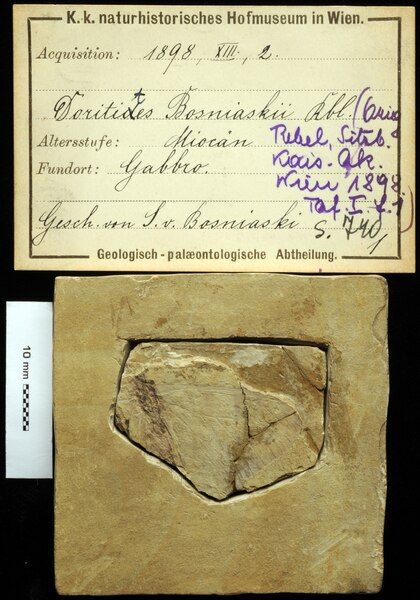 K. k. naturhistorisches Hofmuseum in Wien.
Acquisition: 1898, XIII, 2.
Doritites Bosniaskii Rbl. (Orig.
Altersstufe: Miocän Rebel, Sitzb.
Fundort: Gabbro. Kais. Ak.
Wien 1898
Taf. I f. 1)
Gesch. von S. v. Bosniaski S. 740
Geologisch-palæontologische Abtheilung.
10 mm